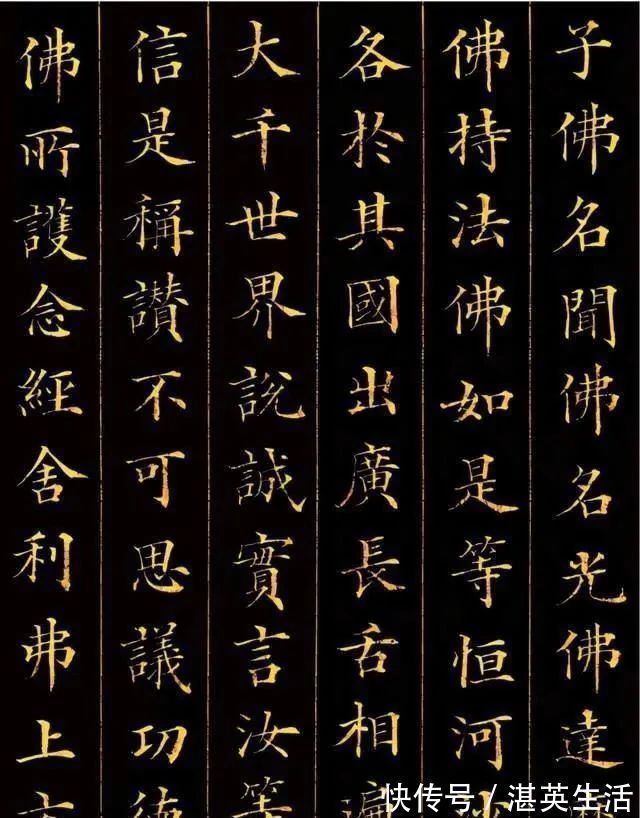 子佛名聞佛名光佛達
佛持法佛如是等恒河
各於其國出廣長舌相
大千世界說誠實言汝等
信是稱讃不可思議功德
佛所護念經舍利弗上方
快传号／湛英生活